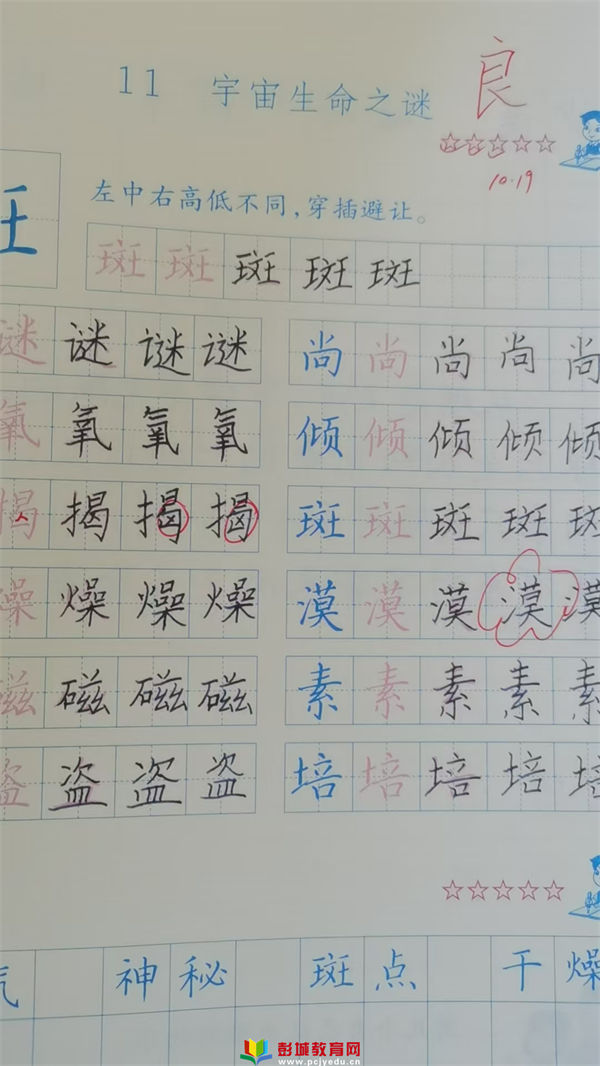 11 宇宙生命之谜
良
10.19
左中右高低不同，穿插避让。
王
斑 斑 斑 斑 斑
谜 谜 谜 谜 尚 尚 尚 尚 尚
氧 氧 氧 氧 倾 倾 倾 倾 倾
揭 揭 揭 揭 斑 斑 斑 斑 斑
燥 燥 燥 燥 漠 漠 漠 漠 漠
磁 磁 磁 磁 素 素 素 素 素
盗 盗 盗 盗 培 培 培 培 培
气 神秘 斑点 干燥
彭城教育网
www.pcjyedu.cn